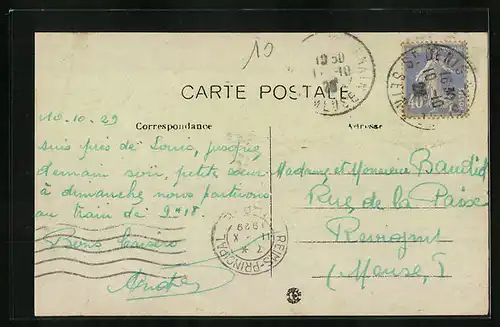 10
CARTE POSTALE
Correspondance
Adresse
10.10.29
suis près de Louis, jusqu'à
demain soir, petite sœur
à dimanche nous partirons
au train de 9 h 18.
Bons baisers
Madame et Monsieur
Rue de la Paix
Revigny
(Meuse)
10 30
MEUSE
ST DENIS
SEINE
16
10-10
40
REIMS-PRINCIPAL
7
11 X
1929